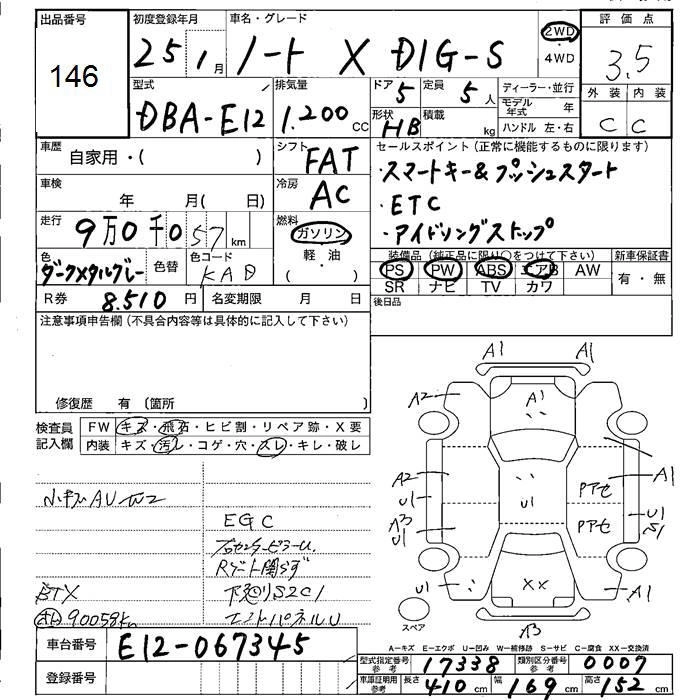 出品番号 初度登録年月 車名・グレード 2WD ・ 4WD 評価点
146 25 1月 ノート X DIG-S 3.5
型式 排気量 ドア 5 定員 5人 ディーラー・並行 外装 内装
DBA-E12 1.200cc 形状 HB 積載 kg モデル年式 年 C C
ハンドル 左・右
車歴 自家用・( ) シフト FAT セールスポイント (正常に機能するものに限ります)
車検 年 月( 日) 冷房 AC ・スマートキー&プッシュスタート
・ETC
走行 9万0千057km 燃料 ガソリン 軽・油 ( ) ・アイドリングストップ
色 ダークメタルグレー 色替 色コード KAD 装備品 (純正品に限り○をつけて下さい) 新車保証書
PS PW ABS エアB AW 有・無
SR ナビ TV カワ
R券 8.510円 名変期限 月 日 後日品
注意事項申告欄 (不具合内容等は具体的に記入して下さい)
修復歴 有 (箇所
検査員記入欄 FW キズ・飛石・ヒビ割・リペア跡・X要
内装 キズ・汚レ・コゲ・穴・スレ・キレ・破レ
A1 A1
A2 A1
A2 U1 A3 U1 U1 PアセPアセ A1 U1 S1
U1 XX A1
A3
スペア
小キズAU
EGC
Rゲート開らず
下廻りS2C1
エンドパネルU
90058km
A-キズ E-エクボ U-凹み W-補修跡 S-サビ C-腐食 XX-交換済
車台番号 E12-067345
型式指定番号 参考 17338 類別区分番号 参考 0007
登録番号 車庫証明用 参考 長さ 410cm 幅 169cm 高さ 152cm